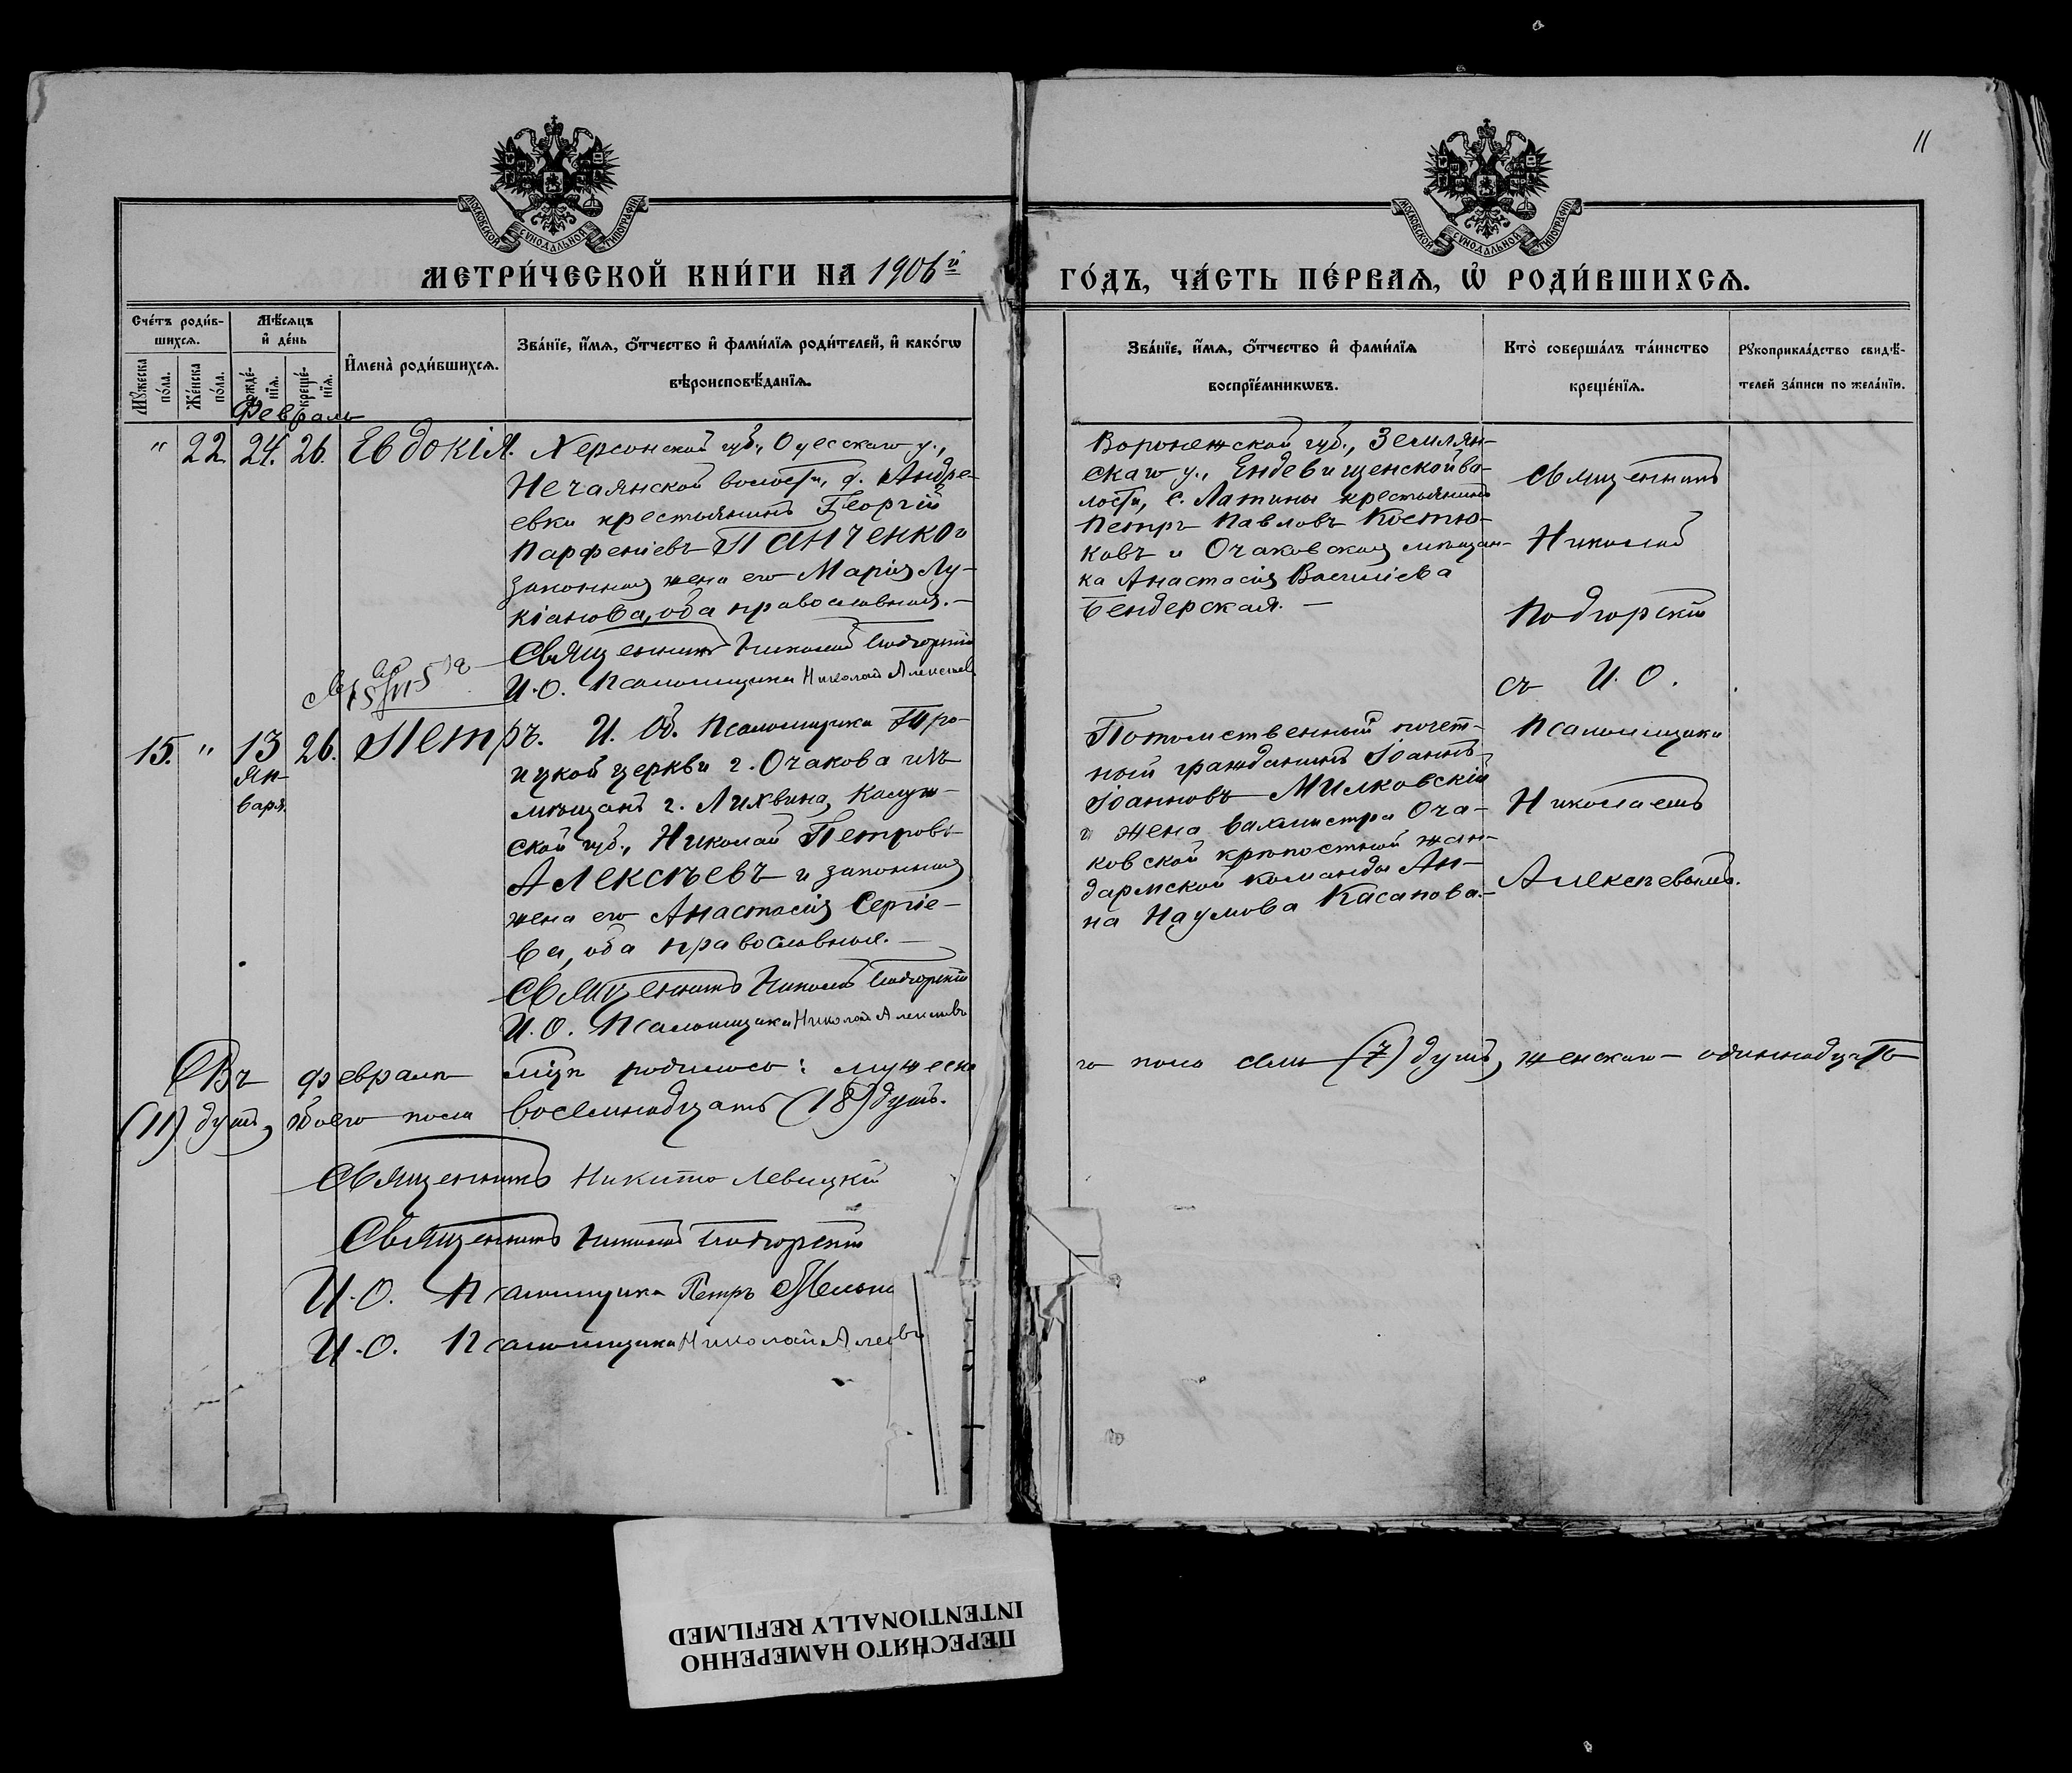 11
МОСКОВСКОЙ СѴНОДАЛЬНОЙ ТИПОГРАФІИ
МОСКОВСКОЙ СѴНОДАЛЬНОЙ ТИПОГРАФІИ
МЕТРИ́ЧЕСКОЙ КНИ́ГИ НА 1906й
ГО́ДЪ, ЧА́СТЬ ПЕ́РВАѦ, Ѡ҆ РОДИ́ВШИХСѦ.
Счетъ роди́в-
шихсѧ.
Мѣ́сѧцъ
и҆ де́нь
Мꙋжеска по́ла.
Же́нска по́ла.
рожде́-нїѧ.
креще́-нїѧ.
И҆мена̀ роди́вшихсѧ.
Зва́нїе, и҆́мѧ, ѻ҆́тчество и҆ фами́лїѧ роди́телей, и҆ како́гѡ
вѣроисповѣ́данїѧ.
Зва́нїе, и҆́мѧ, ѻ҆́тчество и҆ фами́лїѧ
воспрїе́мникѡвъ.
Кто̀ соверша́лъ та́инство
креще́нїѧ.
Рꙋкоприкла́дство свидѣ́-
телей за́писи по жела́нїю.
Февраль
" 22. 24. 26. Евдокія.
Херсонской губ., Одесскаго у.,
Нечаянской волости, д. Андре-
евки крестьянинъ Георгій
Парфеніевъ Панченко и
законная жена его Марія Лу-
кіанова, оба православные.-
Священникъ Николай Подгорскій
И.О. Псаломщика Николай Алексѣевъ
Воронежской губ., Землян-
скаго у., Ендевищенской во-
лости, с. Латины крестьянинъ
Петръ Павловъ Костю-
ковъ и Очаковская мѣщан-
ка Анастасія Василіева
Бендерская. -
Священникъ
Николай
Подгорскій
съ И.О.
Псаломщика
Николаемъ
Алексѣевымъ.
15. " 13 Января. 26. Петръ.
И. Об. Псаломщика Тро-
ицкой церкви г. Очакова изъ
мѣщанъ г. Лихвина, Калуж-
ской губ., Николай Петровъ
Алексѣевъ и законная
жена его Анастасія Сергіе-
ва, оба православные. -
Священникъ Николай Подгорскій
И.О. Псаломщика Николай Алексѣевъ
Потомственный почет-
ный гражданинъ Іоаннъ
Іоанновъ Милковскій
и жена вахмистра Оча-
ковской крѣпостной жан-
дармской команды Ан-
на Наумова Касапова.-
Въ февралѣ мцѣ родилось: мужеска-
го пола семь (7) душъ, женскаго - одиннадцать
(11) душъ, обоего пола восемнадцать (18) душъ.
Священникъ Никита Левицкій
Священникъ Николай Подгорскій
И.О. Псаломщика Петръ
И.О. Псаломщика Николай
ПЕРЕСНЯТО НАМЕРЕННО
INTENTIONALLY REFILMED